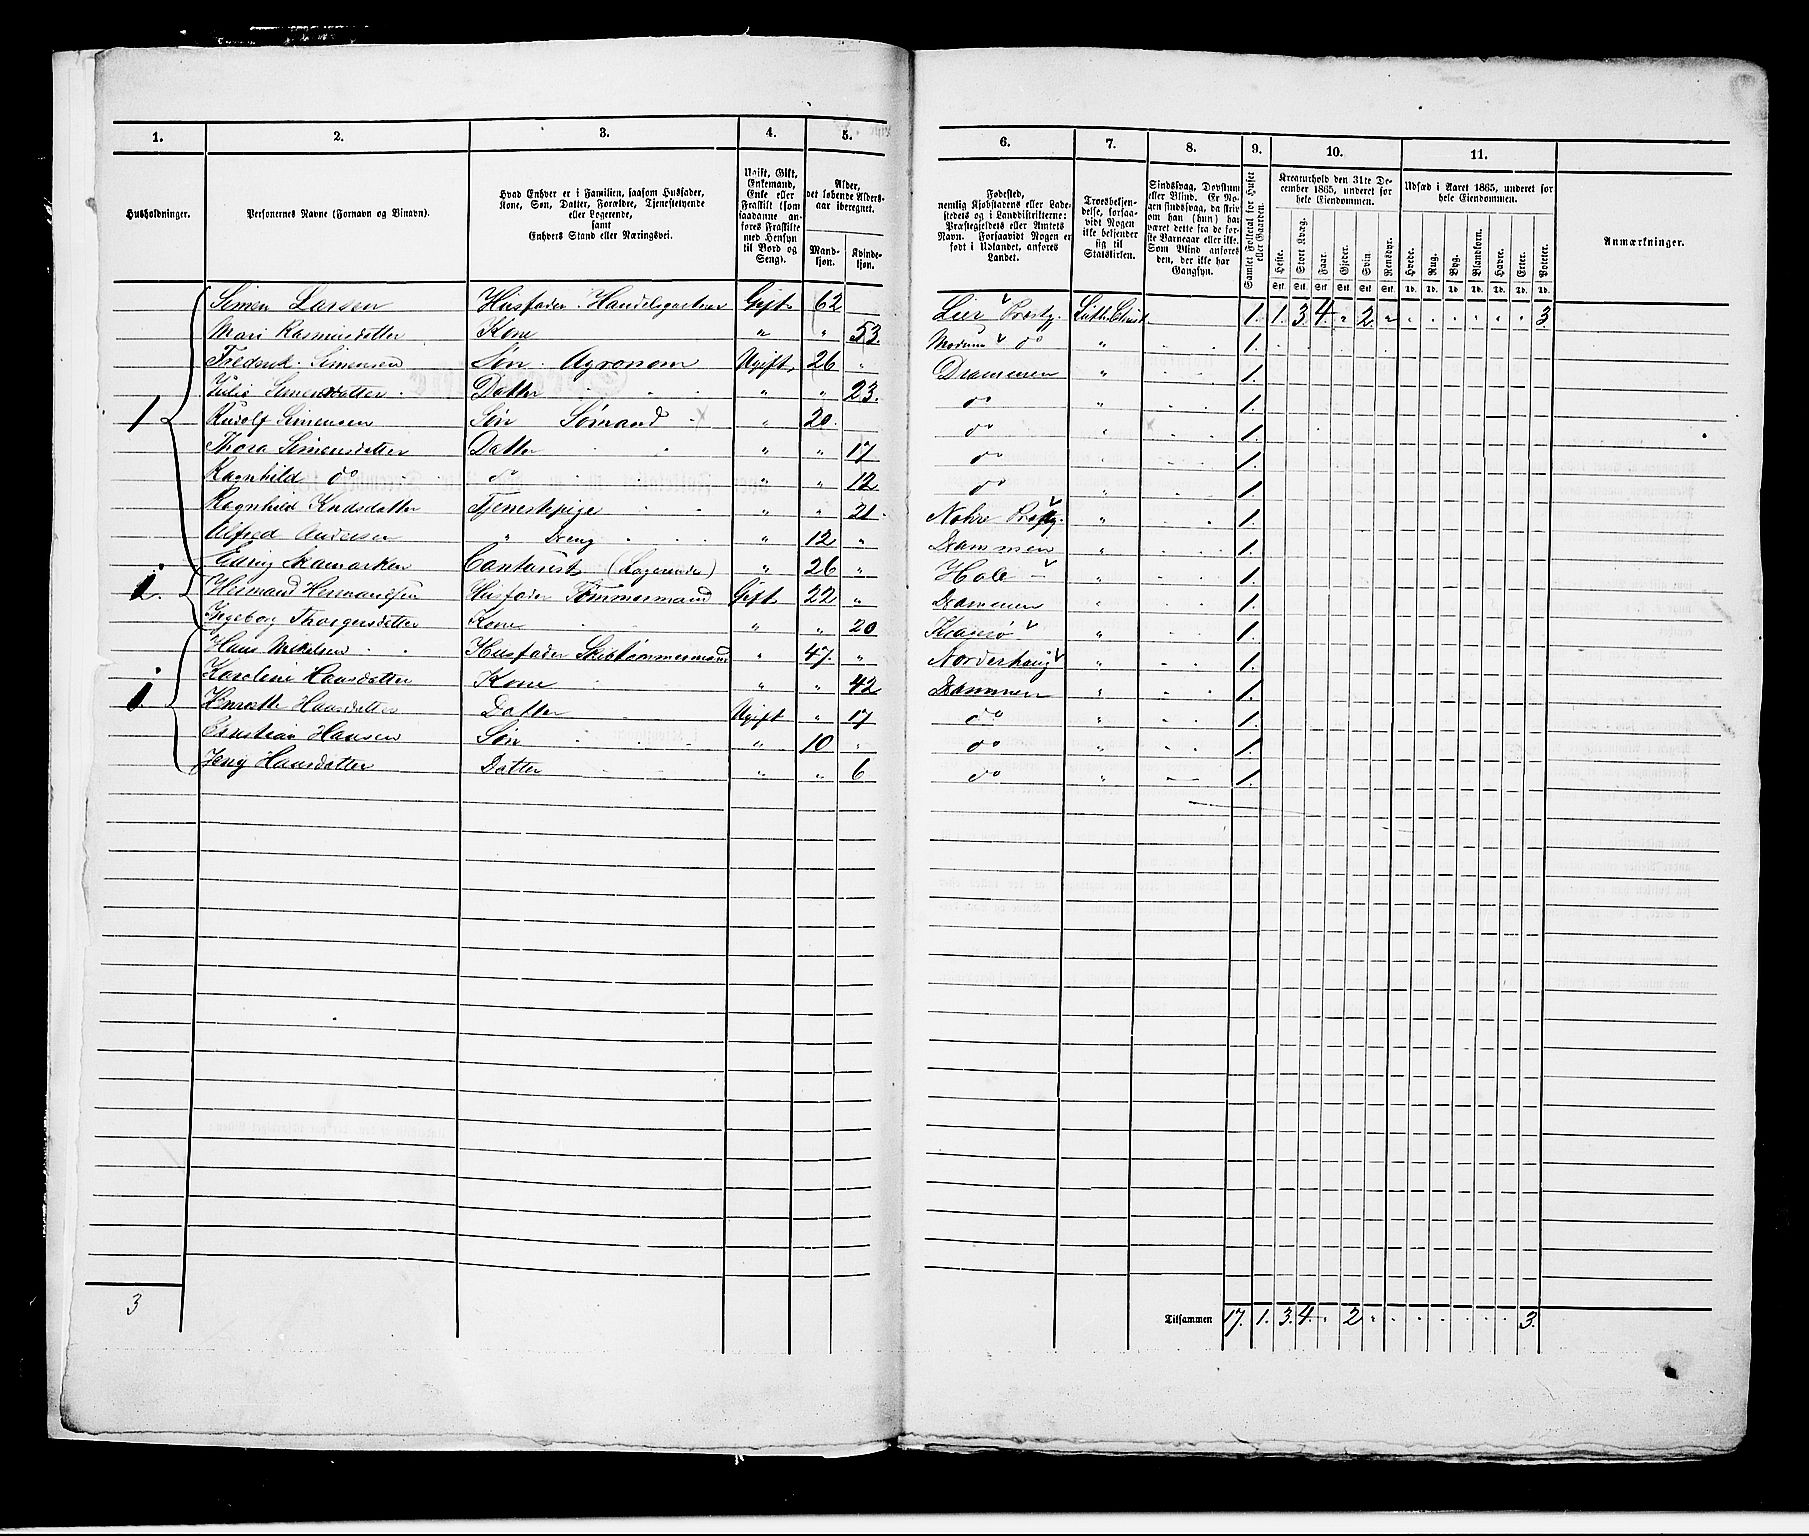 1. 2. 3. 4. 5. 6. 7. 8. 9. 10. 11.
Husholdninger.
Personernes Navne (Fornavn og Binavn).
Hvad Enhver er i Familien, saasom Husfader,
Kone, Søn, Datter, Forældre, Tjenestetyende
eller Logerende,
samt
Enhvers Stand eller Næringsvei.
Ugift, Gift,
Enkemand,
Enke eller
Fraskilt (som
saadanne an-
føres Fraskilte
med Hensyn
til Bord og
Seng).
Alder,
det løbende Alders-
aar iberegnet.
Mand-
kjøn.
Kvinde-
kjøn.
Fødested,
nemlig Kjøbstadens eller Lade-
stedets og i Landdistrikterne:
Præstegjeldets eller Amtets
Navn. Forsaavidt Nogen er
født i Udlandet, anføres
Landet.
Troesbekjen-
delse, forsaa-
vidt Nogen
ikke bekjender
sig til
Statskirken.
Sindssvag, Døvstum
eller Blind. Er No-
gen sindssvag, da skriv
om han (hun) har
været dette fra de før-
ste Barneaar eller ikke.
Som Blind anføres
den, der ikke har
Gangsyn.
Samlet Folketal for Huset
eller Gaarden.
Kreaturhold den 31te De-
cember 1865, underet for
hele Eiendommen.
Heste. Stort Kvæg. Faar. Gjeder. Svin. Rensdyr.
Stk. Stk. Stk. Stk. Stk. Stk.
Udsæd i Aaret 1865, underet for
hele Eiendommen.
Hvede. Rug. Byg. Blandkorn. Havre. Erter. Poteter.
Td. Td. Td. Td. Td. Td. Td.
Anmærkninger.
Simen Larsen Husfader. Handelsgartner Gift 62 Lier Præstg. Luth. Christ. 1. 1. 3. 4. " 2. " 3.
Mari Rasmusdatter Kone " " 53. Modum do " 1.
Fredrik Simensen Søn. Agronom Ugift, 26 " Drammen " 1.
Julie Simensdatter Datter " " 23. do " 1.
1 Rudolf Simensen Søn Sømand " 20. do " 1.
Thora Simensdatter Datter " " 17 do " 1.
Ragnhild do do " " 12 do " 1.
Ragnhild Knudsdatter Tjenestepige " " 21. Præstg. " 1.
Alfred Andersen " Dreng " 12 " Drammen " 1.
(Logerende) " 26 " Hole " 1.
2. Hermand Hermandsen Husfader Tømmermand Gift 22 " Drammen " 1.
Ingeborg Thorgersdatter Kone " " 20 Kragerø " 1.
Hans Mikelsen Husfader Skibtømmermand " 47. " Norderhaug " 1.
1. Karoline Hansdatter Kone " " 42 Drammen " 1.
Hansdatter Datter Ugift " 17 do " 1.
Christian Hansen Søn " 10 " do " 1.
Jeny Hansdatter Datter " " 6 do " 1.
3
Tilsammen 17. 1. 3. 4. " 2 " 3.